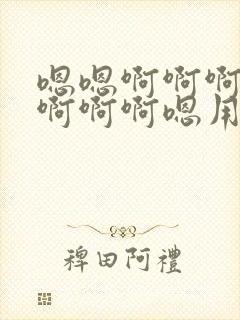 嗯嗯啊啊啊
啊啊啊嗯用
稗田阿禮